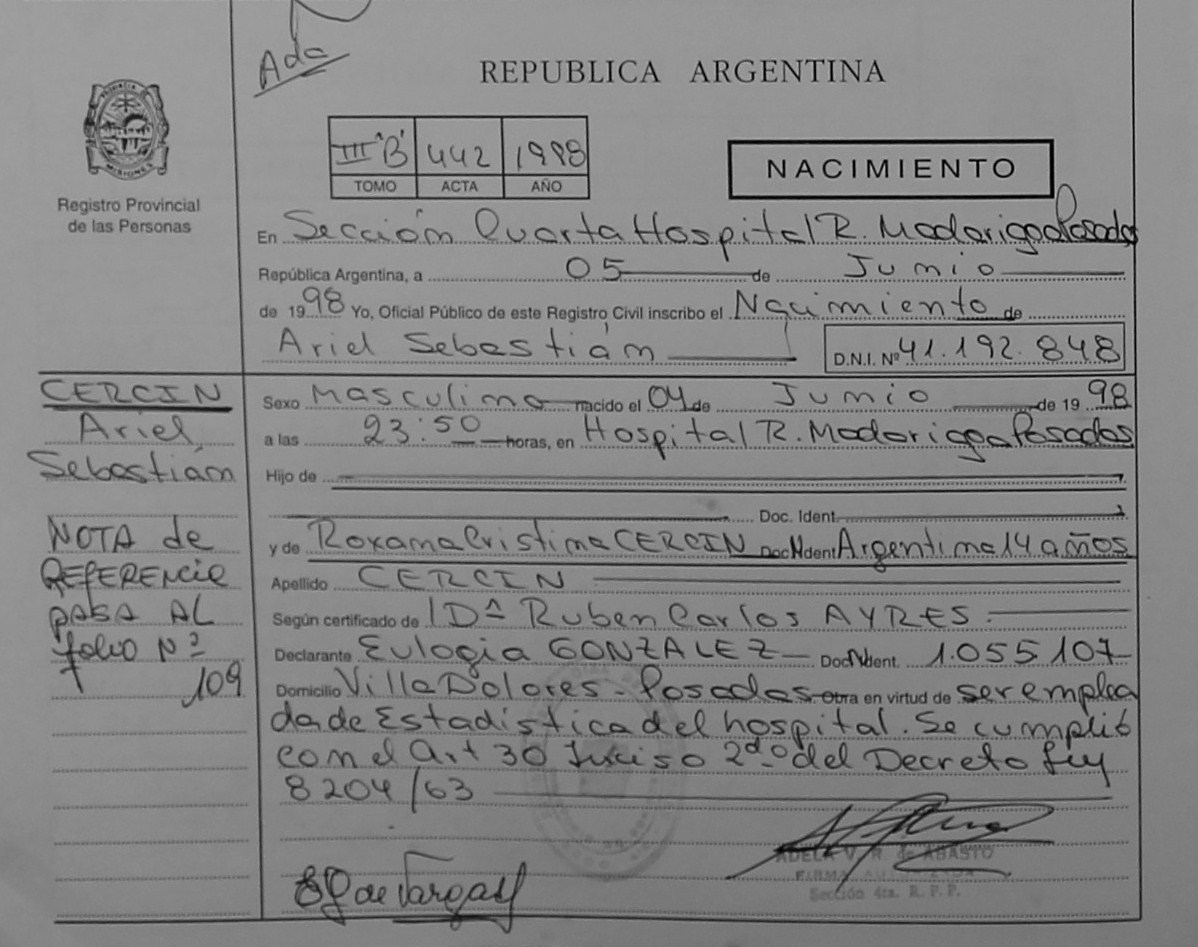 Ada
REPUBLICA ARGENTINA
PROVINCIA
MISIONES
Registro Provincial
de las Personas
III "B" 442 1998
TOMO ACTA AÑO
NACIMIENTO
En Sección Cuarta Hospital R. Madariaga Posadas
República Argentina, a 05 de Junio
de 1998 Yo, Oficial Público de este Registro Civil inscribo el Nacimiento de
Ariel Sebastián
D.N.I. Nº 41.192.848
CERCIN
Ariel
Sebastián
NOTA de
REFERENCIA
PASA AL
folio Nº
109
Sexo Masculino nacido el 04 de Junio de 1998
a las 23:50 horas, en Hospital R. Madariaga Posadas
Hijo de
Doc. Ident.
y de Roxana Cristina CERCIN Doc. Ident. Argentina 14 años
Apellido CERCIN
Según certificado de Dª Ruben Carlos AYRES.
Declarante Eulogia GONZALEZ Doc. Ident. 1.055107
Domicilio Villa Dolores - Posadas Obra en virtud de ser emplea
da de Estadística del hospital. Se cumplió
con el Art 30 Inciso 2do del Decreto Ley
8204/63
EG de Vargas
ADELA V. R. de ABASTO
FIRMA AUTORIZADA
Sección 4ta. R. P. P.